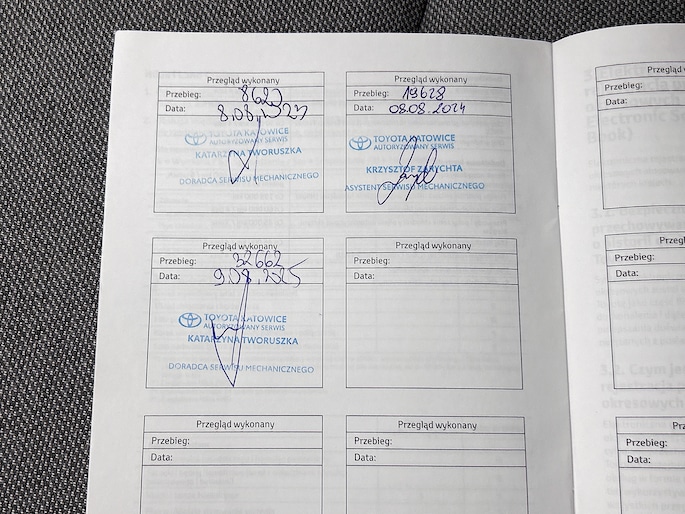 Przegląd wykonany
Przebieg: 8620
Data: 8.08.2023
TOYOTA KATOWICE
AUTORYZOWANY SERWIS
KATARZYNA TWORUSZKA
DORADCA SERWISU MECHANICZNEGO
Przegląd wykonany
Przebieg: 19628
Data: 08.08.2024
TOYOTA KATOWICE
AUTORYZOWANY SERWIS
KRZYSZTOF ZARYCHTA
ASYSTENT SERWISU MECHANICZNEGO
Przegląd wykonany
Przebieg: 32662
Data: 9.08.2025
TOYOTA KATOWICE
AUTORYZOWANY SERWIS
KATARZYNA TWORUSZKA
DORADCA SERWISU MECHANICZNEGO
Przegląd wykonany
Przebieg:
Data:
Przegląd wykonany
Przebieg:
Data:
Przegląd wykonany
Przebieg:
Data:
Przegląd
Przebieg:
Data:
Przebieg:
Data:
Przebieg:
Data: